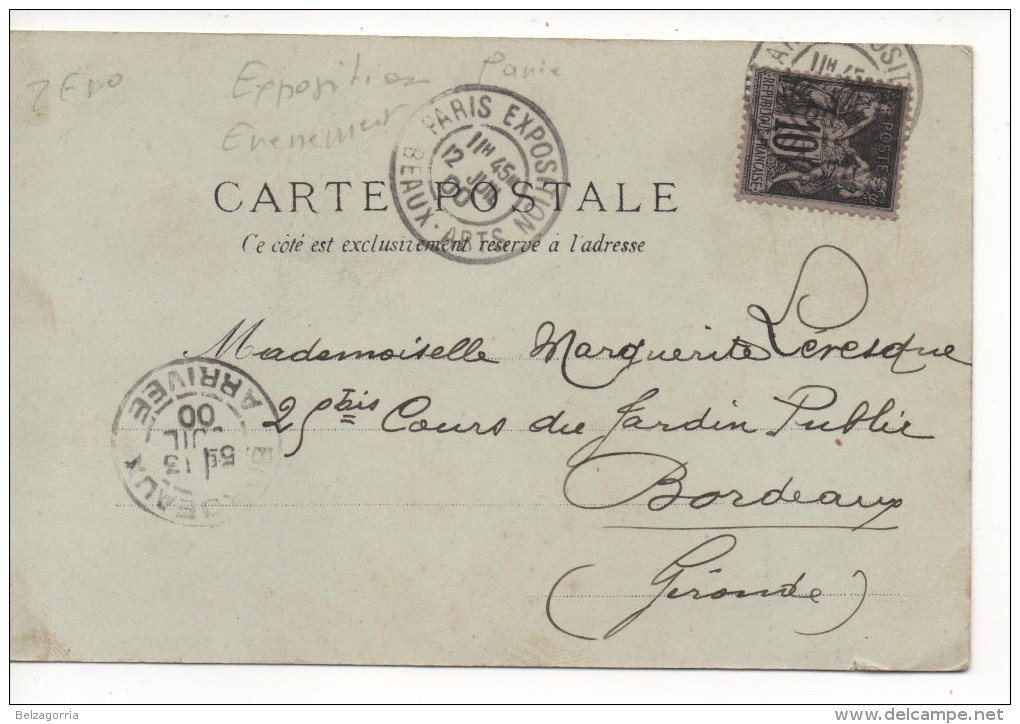 Exposition Paris
Evenement
PARIS EXPOSITION
11H 45
12 JUIL
00
BEAUX-ARTS
POSTES
10
REPUBLIQUE FRANÇAISE
CARTE POSTALE
Ce côté est exclusivement réservé à l'adresse
Mademoiselle Marguerite Lévesque
29 bis Cours du Jardin Public
Bordeaux
(Gironde)
BORDEAUX
5E
13
JUIL
00
ARRIVEE
Belzagorria
www.delcampe.net